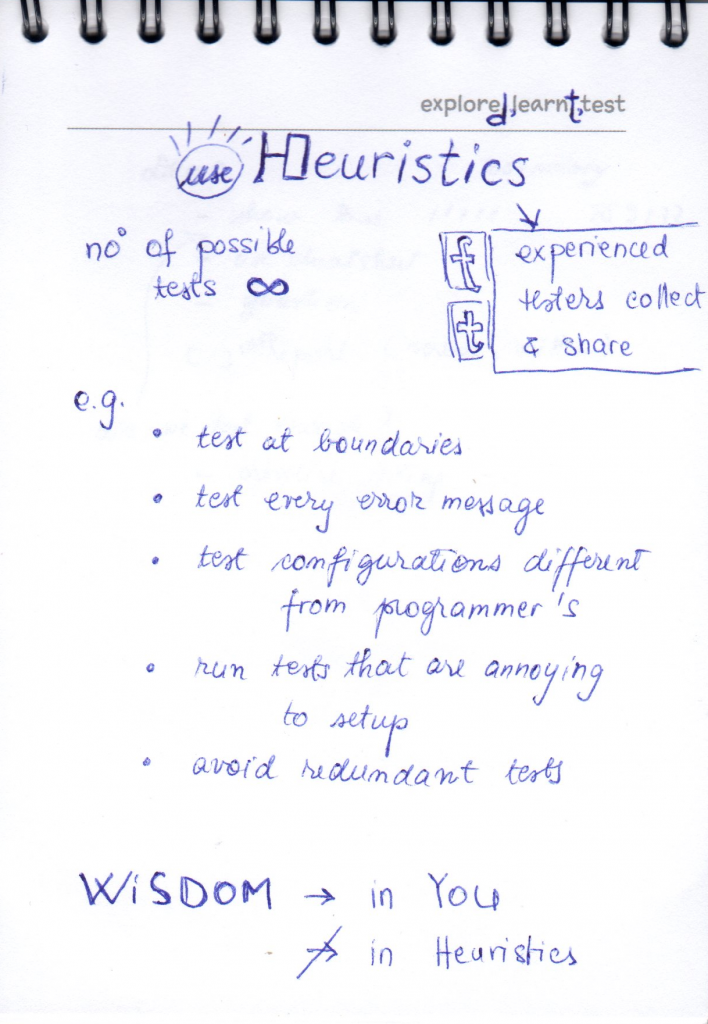 explored, learnt, test
use Heuristics
no° of possible
tests ∞
f experienced
t testers collect
& share
e.g.
• test at boundaries
• test every error message
• test configurations different
from programmer's
• run tests that are annoying
to setup
• avoid redundant tests
WiSDOM → in You
↛ in Heuristics